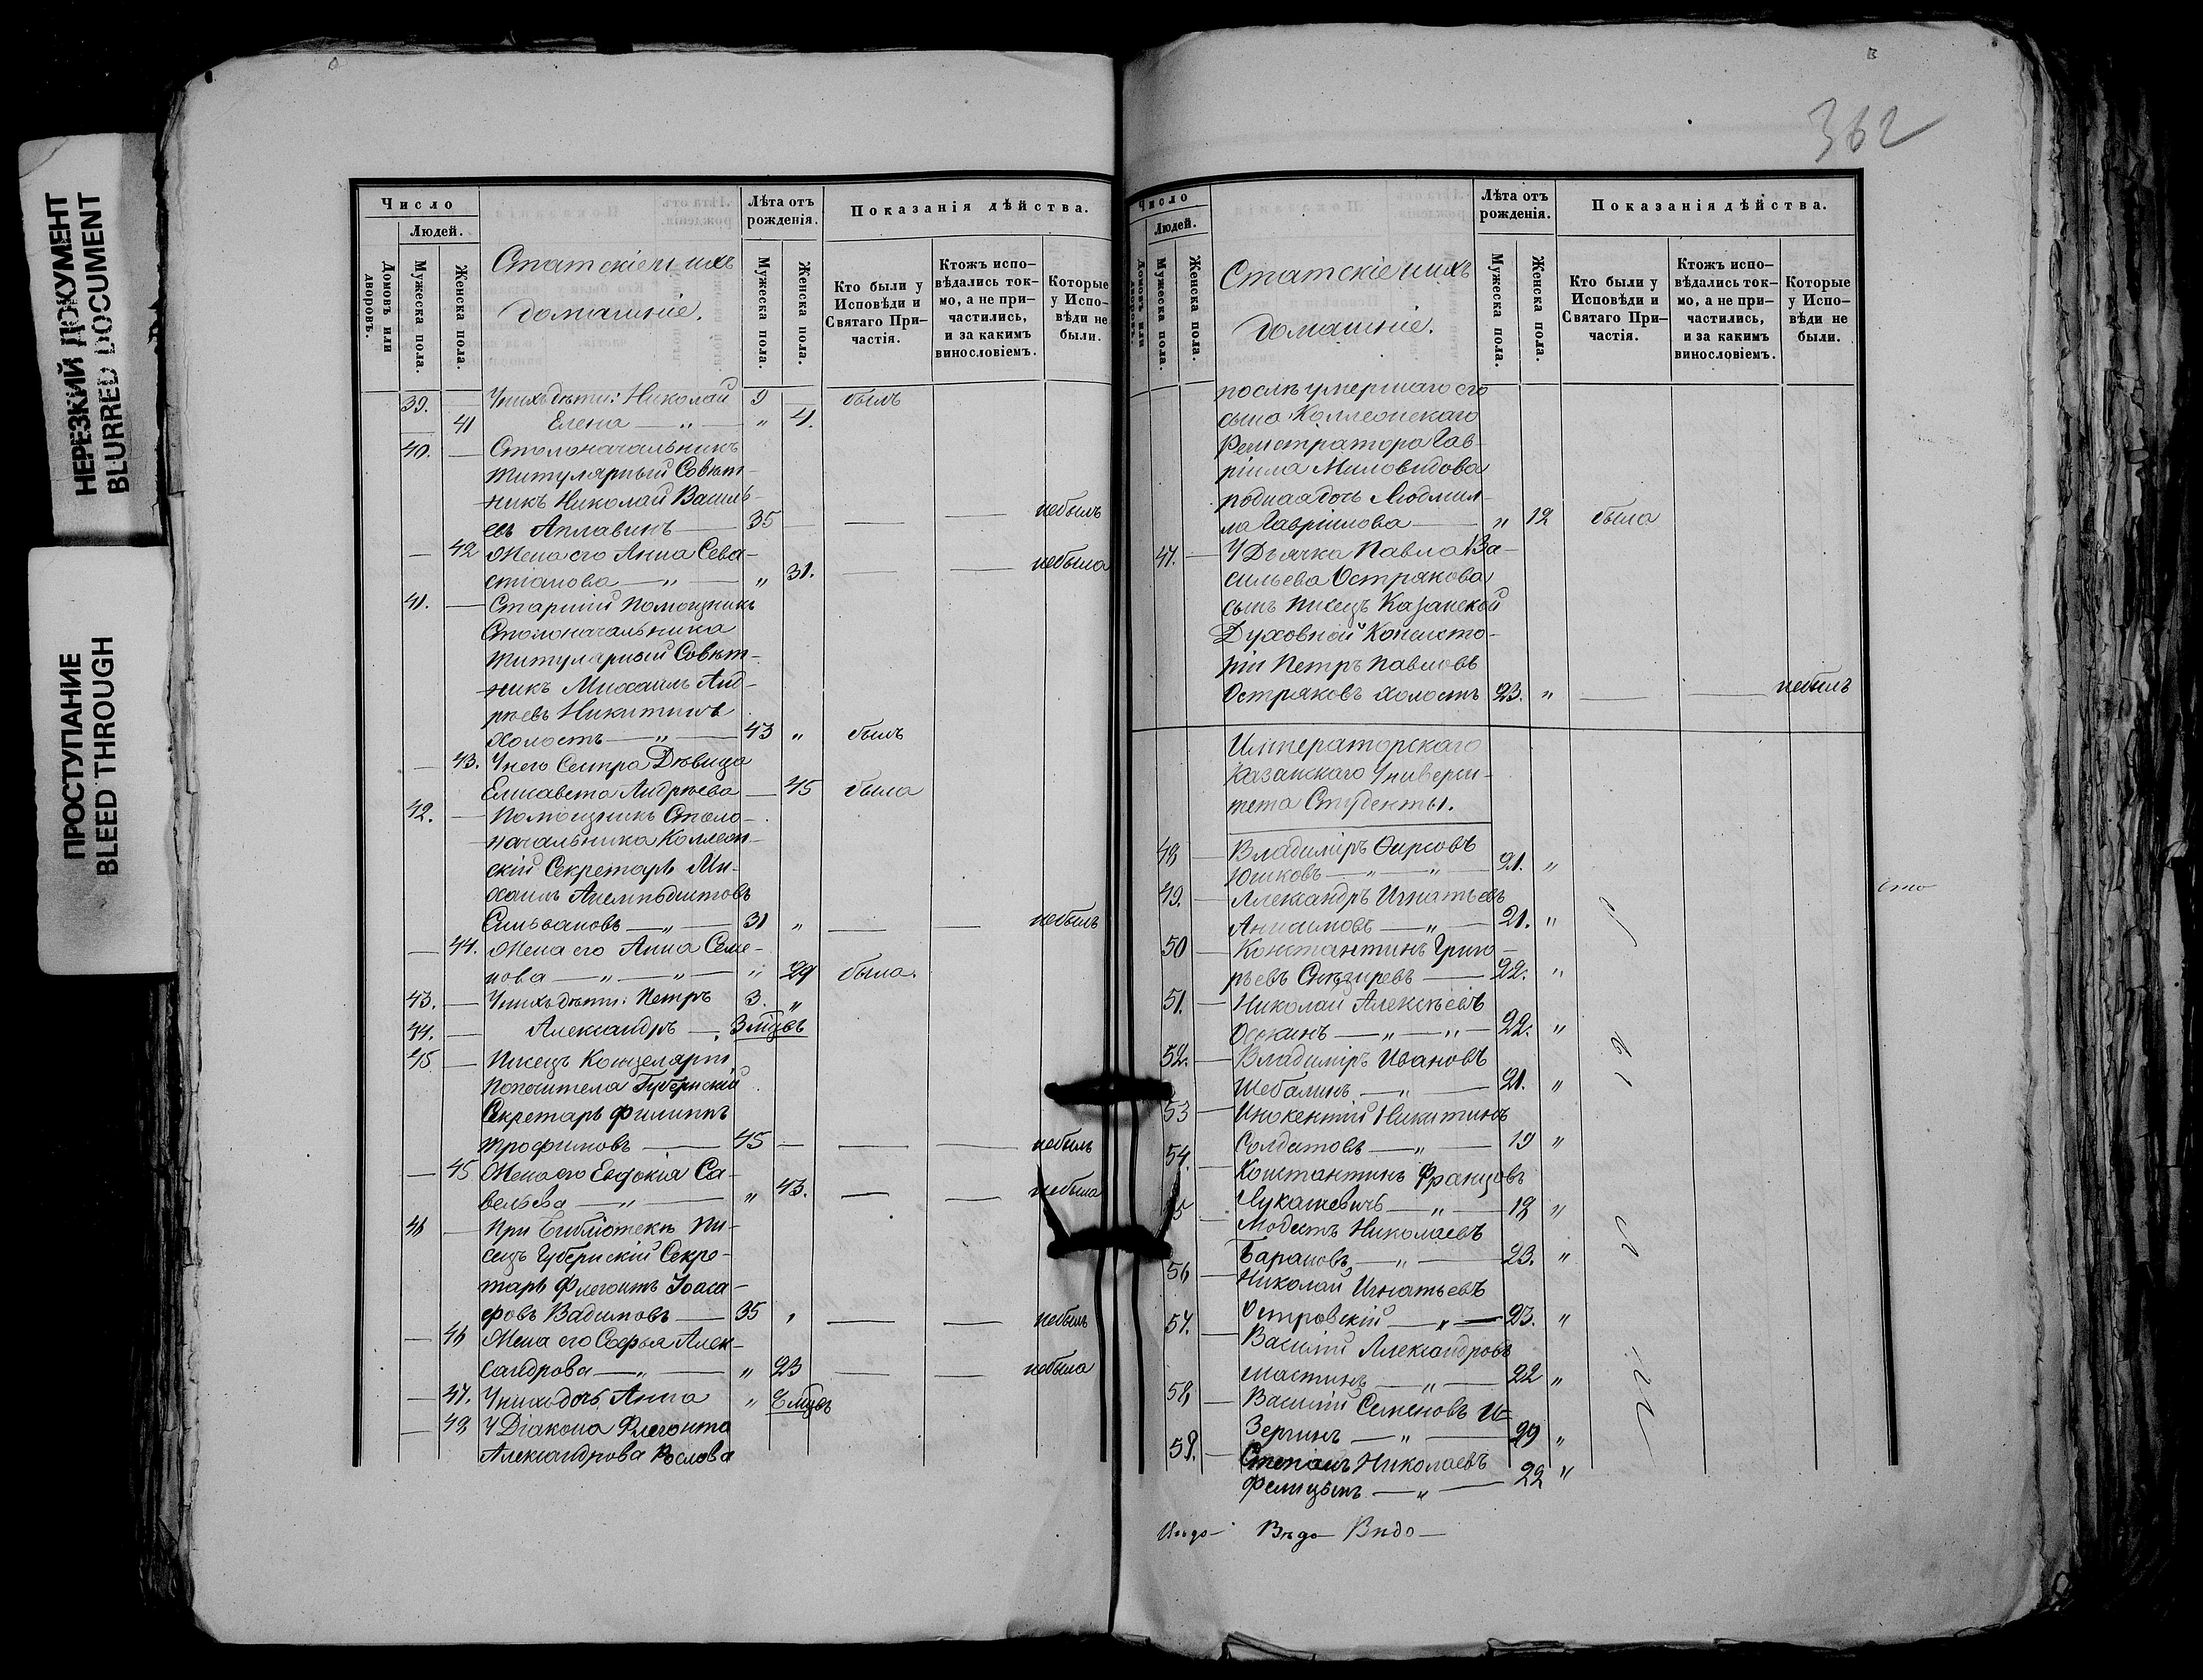 НЕРЕЗКИЙ ДОКУМЕНТ
BLURRED DOCUMENT
ПРОСТУПАНИЕ
BLEED THROUGH
Число
Людей.
Домовъ или дворовъ.
Мужеска пола.
Женска пола.
Статскіе и ихъ
домашніе.
Лѣта отъ рожденія.
Мужеска пола.
Женска пола.
Показанія дѣйства.
Кто были у Исповѣди и Святаго Причастія.
Ктожъ исповѣдались токмо, а не причастились, и за какимъ винословіемъ.
Которые у Исповѣди не были.
39. — У нихъ дѣти: Николай 9 — былъ
41 Елена — „ — „ 4.
40. — Столоначальникъ
Титулярный Совѣт-
никъ Николай Василь-
евъ Аплавинъ — 35 — — — небылъ
— 42 Жена его Анна Сева-
стіанова — „ — „ 31. — — небыла
41. — Старшій помощникъ
Столоначальника
Титулярный Совѣт-
никъ Михаилъ Анд-
рѣевъ Никитинъ
холостъ — „ — 43 „ былъ
— 43. У него Сестра Дѣвица
Елисавета Андрѣева — 45 была
42. — Помощникъ Столо-
начальника Коллеж-
скій Секретарь Ми-
хаилъ Анемподистовъ
Сильвановъ — „ — 31 „ — — небылъ
— 44. Жена его Анна Семе-
нова — „ — „ — „ 29 была.
43. — У нихъ дѣти: Петръ 3. „
44. — Александръ — „ 3 мѣцъ
45 — Писецъ Канцеляріи
Попечителя Губернскій
Секретарь Филиппъ
Трофимовъ — 45 — — — небылъ
— 45 Жена его Евдокія Са-
вельева — „ — „ 43. — — небыла
46 — При Библіотекѣ Пи-
сецъ Губернскій Секре-
тарь Флегонтъ Іоаса-
фовъ Вадимовъ — 35 „ — — небылъ
— 46 Жена его Софья Алек-
сандрова — „ — „ 23 — — небыла
— 47. У нихъ дочь Анна „ мѣцъ
— 48 У Діакона Флегонта
Александрова
362
Число
Людей.
Домовъ или дворовъ.
Мужеска пола.
Женска пола.
Статскіе и ихъ
домашніе.
Лѣта отъ рожденія.
Мужеска пола.
Женска пола.
Показанія дѣйства.
Кто были у Исповѣди и Святаго Причастія.
Ктожъ исповѣдались токмо, а не причастились, и за какимъ винословіемъ.
Которые у Исповѣди не были.
послѣ умершаго его
сына Коллежскаго
Регистратора Гав-
ріила Миловидова
родная дочь Людмил-
ла Гавріилова — „ 12 была
47. — У Дьячка Павла Ва-
сильева Острякова
сынъ писецъ Казанской
Духовной Консисто-
ріи Петръ Павловъ
Остряковъ холостъ 23. „ — — небылъ
Императорскаго
Казанскаго Универси-
тета Студенты.
48 — Владиміръ Фирсовъ
Юшковъ — „ — „ — 21. „
49. — Александръ Игнатьевъ
Анисимовъ — „ — 21. „
50 — Константинъ Григо-
рьевъ — 22. „
51. — Николай Алексѣевъ
Осокинъ — „ — „ — 22. „
52. — Владиміръ Ивановъ
Шебалинъ — „ — 21. „
53 — Инокентій Никитинъ
Солдатовъ — „ — 19 „
54. — Константинъ Францовъ
Лукашевичъ — „ — 18 „
55 — Модестъ Николаевъ
Барановъ — „ — 23. „
56 — Николай Игнатьевъ
Островскій — „ — 23. „
57. — Василій Александровъ
Мастинъ — „ — 22 „
58 — Василій Семеновъ И=
Зергинъ — „ — 29 „
59. — Степанъ Николаевъ
Фелицынъ — „ — 22 „